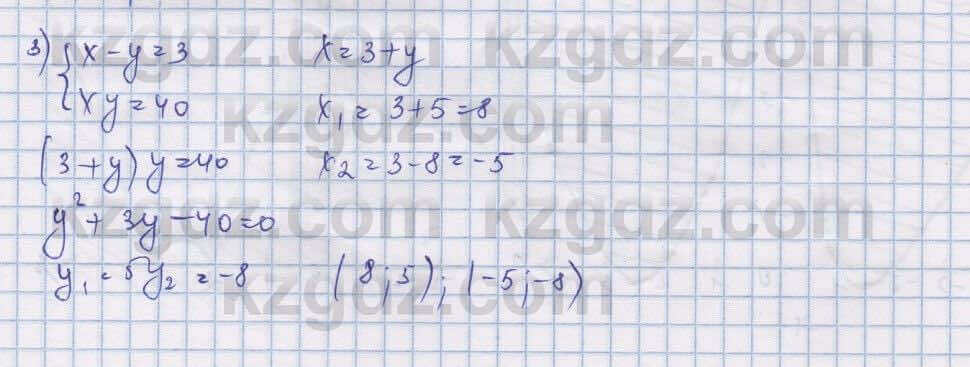 3) { x - y = 3   x = 3 + y
xy = 40   x₁ = 3 + 5 = 8
(3 + y) y = 40   x₂ = 3 - 8 = -5
y² + 3y - 40 = 0
y₁ = 5 y₂ = -8   (8; 5); (-5; -8)
kzgdz.com kzgdz.com
kzgdz.com
kzgdz.com kzgdz.com
kzgdz.com